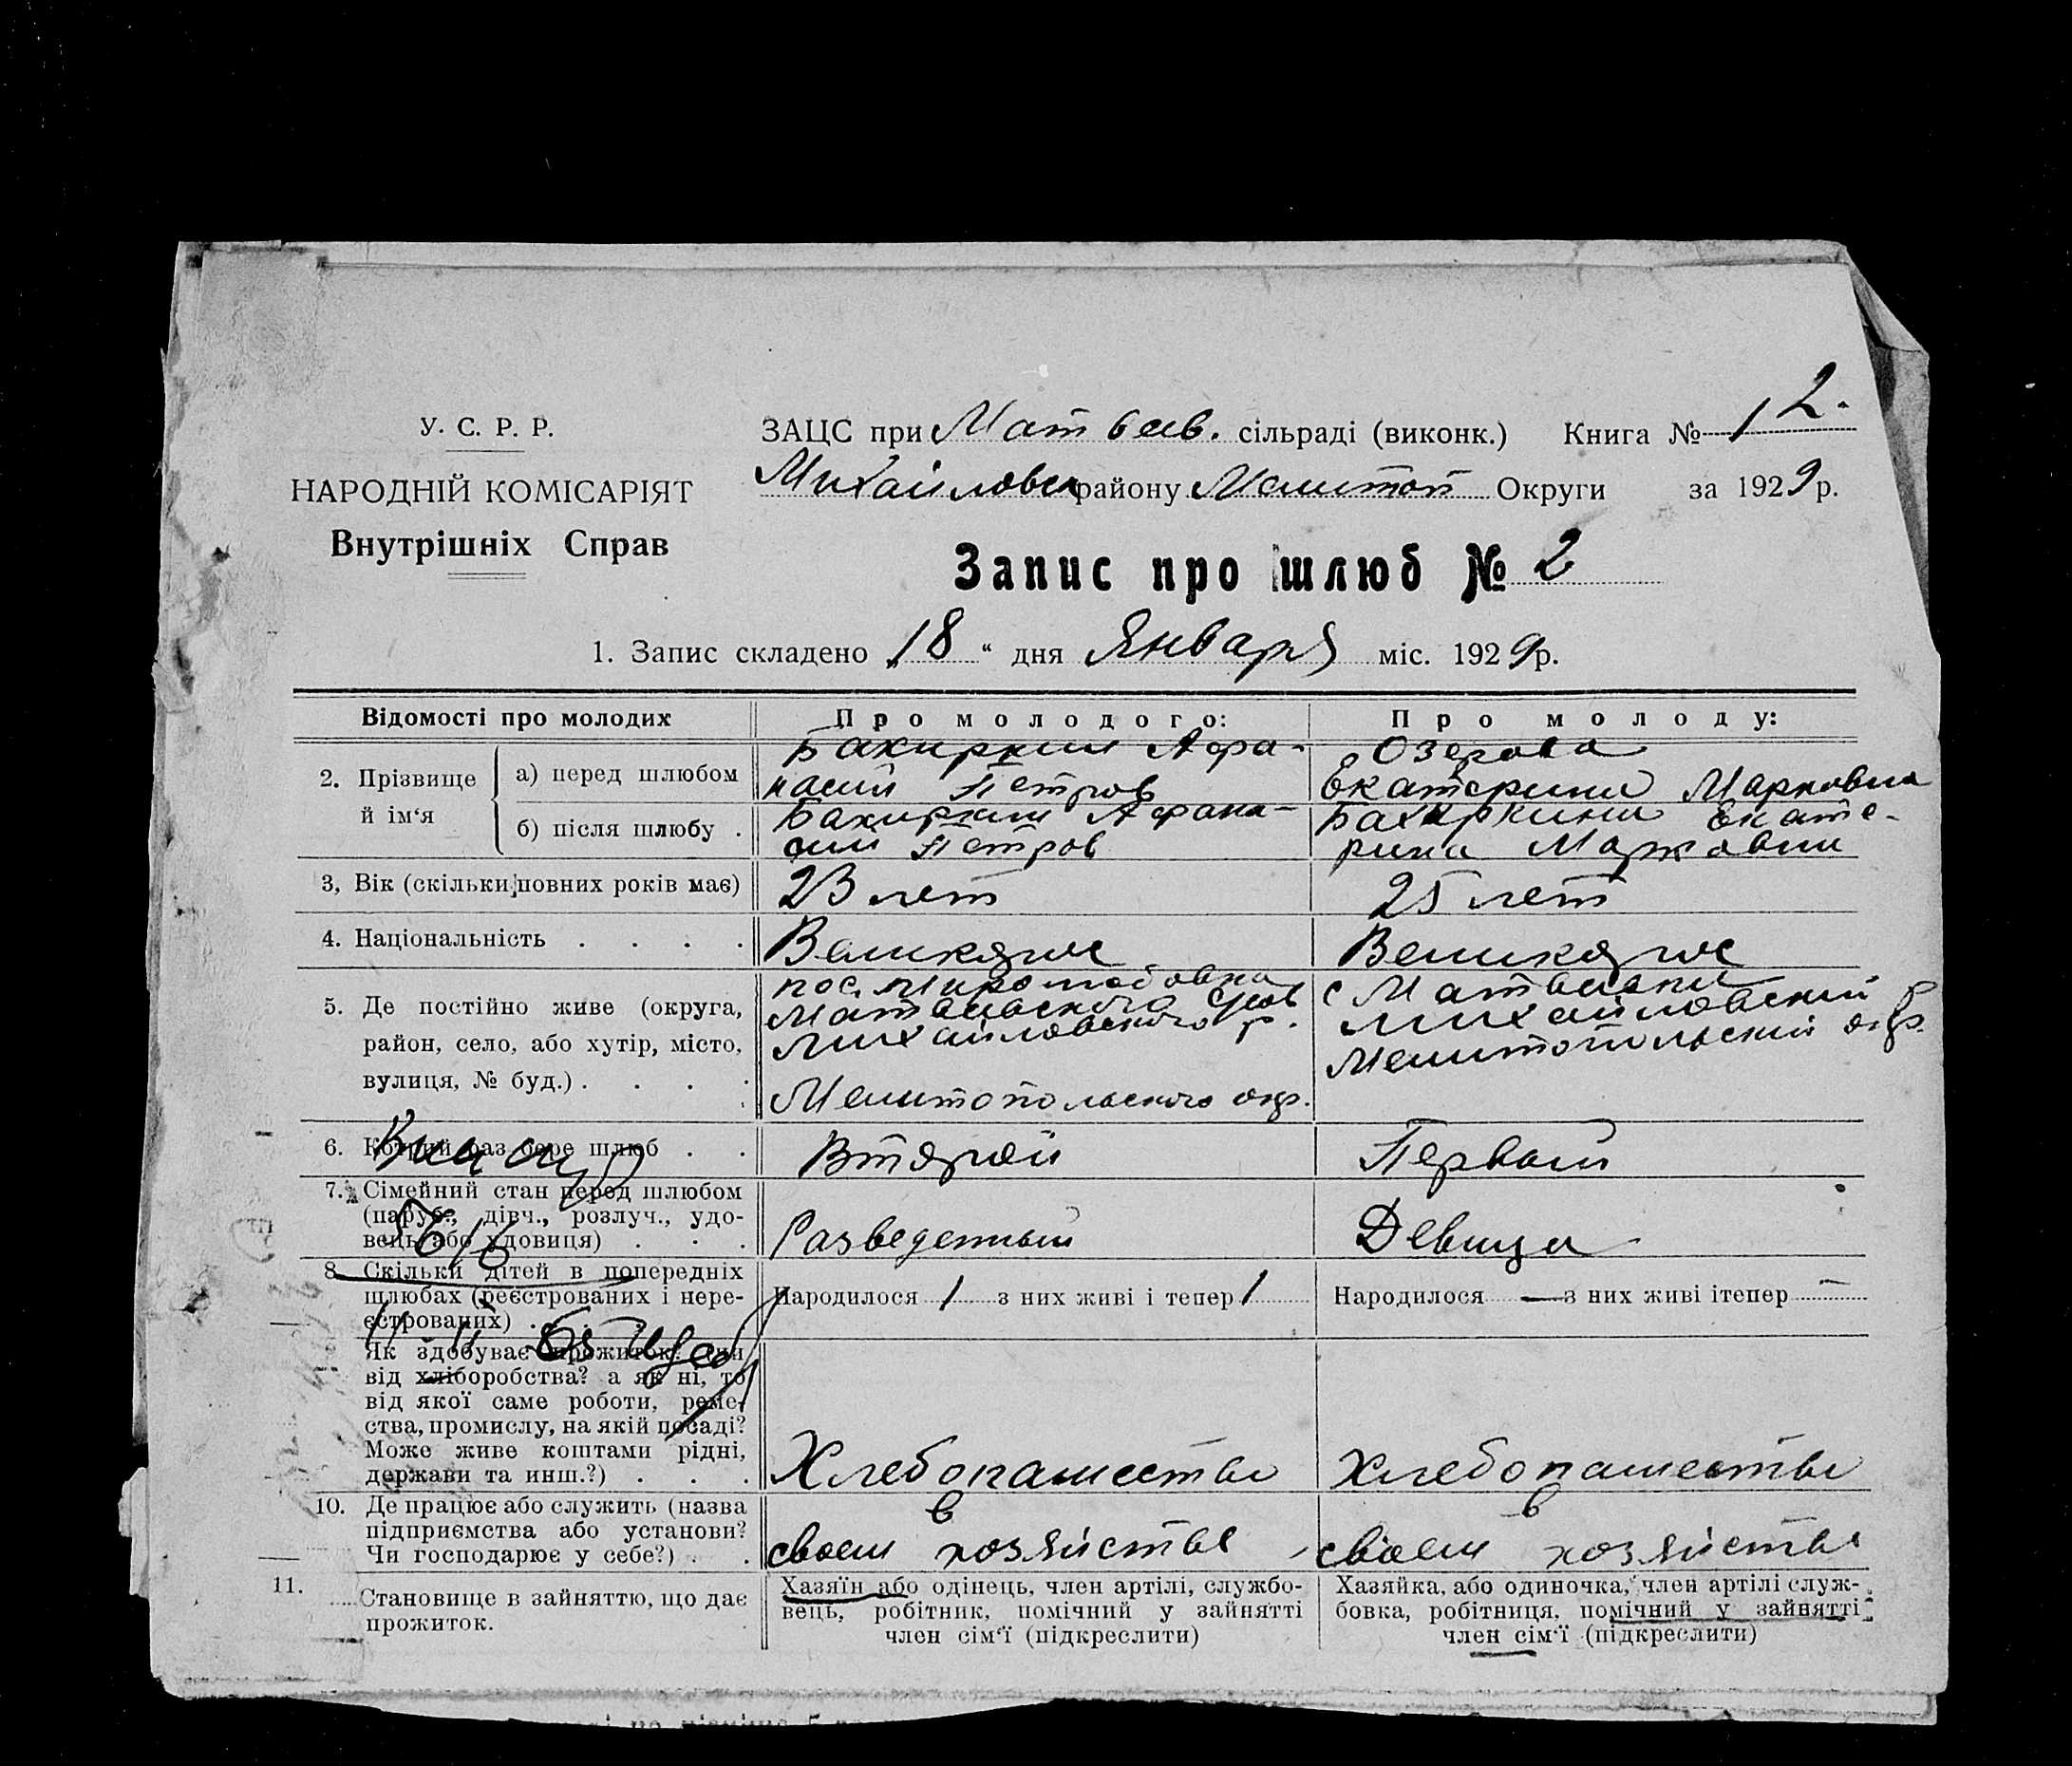 У. С. Р. Р.
НАРОДНІЙ КОМІСАРІЯТ
Внутрішніх Справ
ЗАЦС при Матвеев. сільраді (виконк.) Книга № 1 2.
Михайловск району Мелитоп Округи за 1929 р.
Запис про шлюб № 2
1. Запис складено „18“ дня Января міс. 1929 р.
Відомості про молодих
Про молодого:
Про молоду:
2. Прізвище й ім‘я
а) перед шлюбом
Бакиркин Афа-
насий Петров
Озерова
Екатерина Марковна
б) після шлюбу .
Бакиркин Афана-
сий Петров
Бакиркина Екате-
рина Марковна
3, Вік (скільки повних років має)
23 лет
25 лет
4. Національність . . . .
5. Де постійно живе (округа,
район, село, або хутір, місто,
вулиця, № буд.) . . . .
пос. Миролюбовка
Матвеевского
Михайловского р.
Мелитопольского окр.
с Матвеевки
Михайловский р
Мелитопольский окр.
6. Котрий раз бере шлюб . .
Второй
Первый
7. Сімейний стан перед шлюбом
(паруб., дівч., розлуч., удо-
вець або удовиця) . . .
Разведенный
Девица
8 Скільки дітей в попередніх
шлюбах (реєстрованих і нере-
єстрованих) . .
Народилося 1 з них живі і тепер 1
Народилося — з них живі ітепер —
Як здобуває прожиток? (чи
від хліборобства? а як ні, то
від якої саме роботи, реме-
ства, промислу, на якій посаді?
Може живе коштами рідні,
держави та инш.?) . . .
Хлебопашество
Хлебопашество
10. Де працює або служить (назва
підприємства або установи?
Чи господарює у себе?) . .
в
своем хозяйстве
в
своем хозяйстве
11. Становище в зайняттю, що дає
прожиток.
Хазяїн або одінець, член артілі, службо-
вець, робітник, помічний у зайнятті
член сім‘ї (підкреслити)
Хазяйка, або одиночка, член артілі служ-
бовка, робітниця, помічний у зайнятті
член сім‘ї (підкреслити)